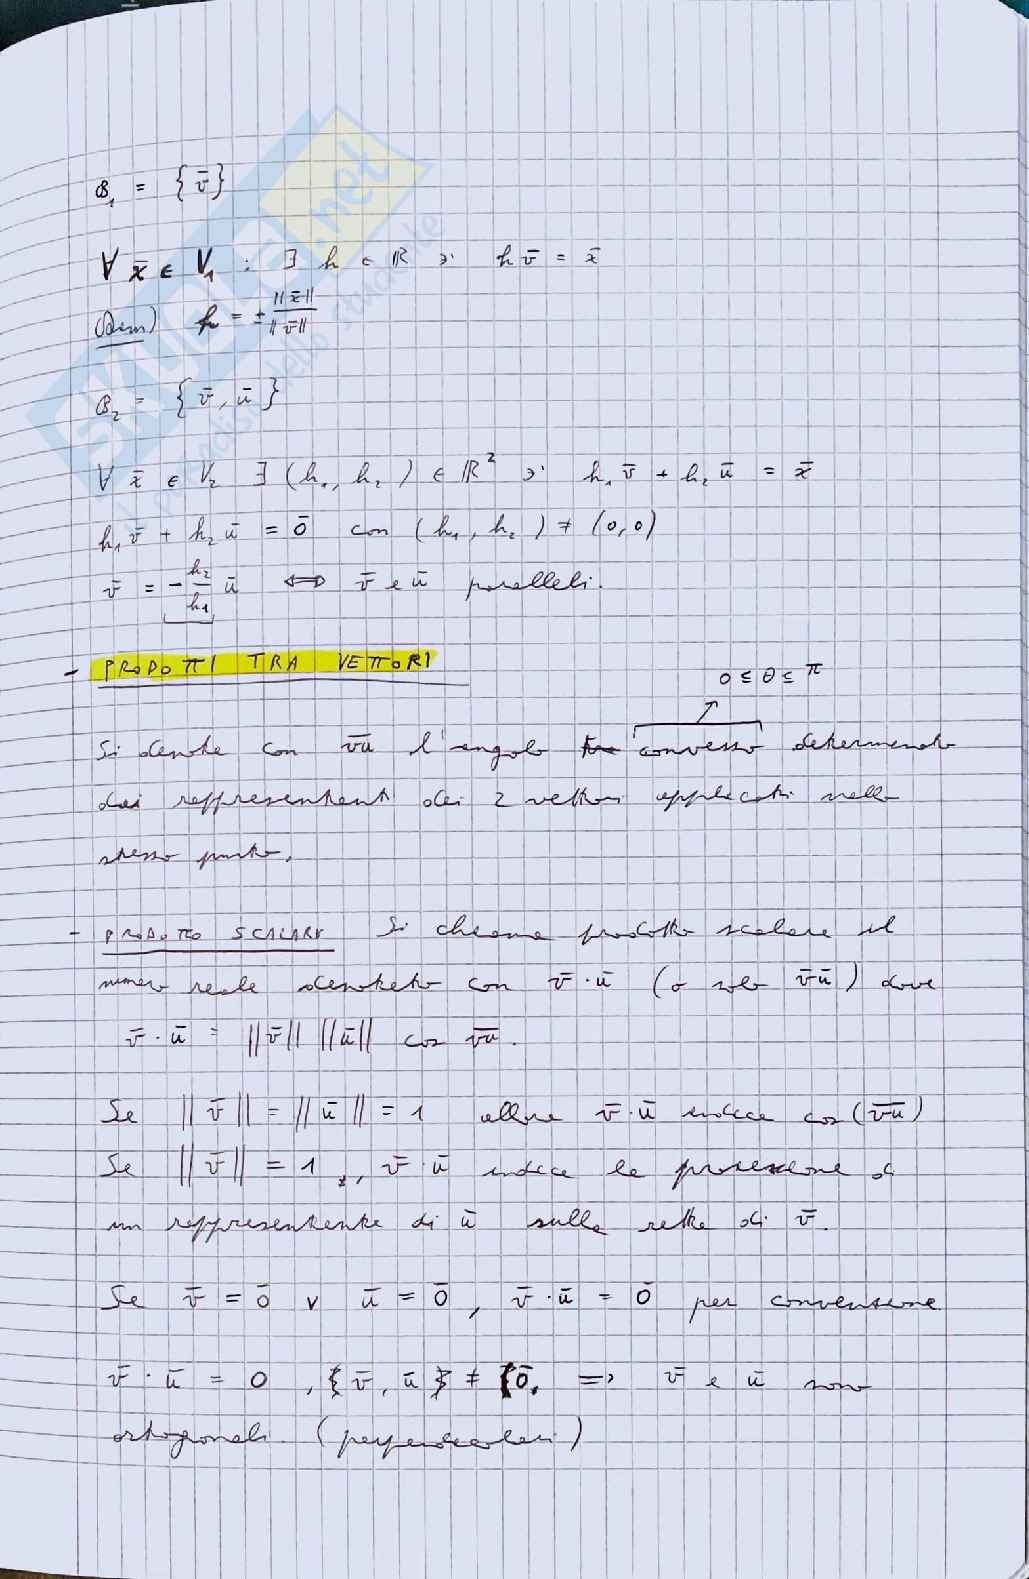 B₁ = { v̄ }
∀ x̄ ∈ V₁ : ∃ h ∈ ℝ ∋' h v̄ = x̄
(Dim) h = ± ||x̄|| / ||v̄||
B₂ = { v̄, ū }
∀ x̄ ∈ V₂ ∃ (h₁, h₂) ∈ ℝ² ∋' h₁ v̄ + h₂ ū = x̄
h₁ v̄ + h₂ ū = 0̄ con (h₁, h₂) ≠ (0,0)
v̄ = - h₂/h₁ ū ⟺ v̄ e ū paralleli.
- PRODOTTI TRA VETTORI
0 ≤ θ ≤ π
Si denota con v̄ū l'angolo convesso determinato
dai rappresentanti dei 2 vettori applicati nello
stesso punto.
- PRODOTTO SCALARE Si chiama prodotto scalare il
numero reale denotato con v̄ · ū (o solo v̄ū) dove
v̄ · ū = ||v̄|| ||ū|| cos v̄ū.
Se ||v̄|| = ||ū|| = 1 allora v̄ · ū indica cos(v̄ū)
Se ||v̄|| = 1, v̄ · ū indica la proiezione di
un rappresentante di ū sulla retta di v̄.
Se v̄ = 0̄ v ū = 0̄, v̄ · ū = 0̄ per convenzione
v̄ · ū = 0, v̄, ū ≠ 0̄, => v̄ e ū sono
ortogonali. (perpendicolari)
SKUOLA.net
il paradiso dello studente